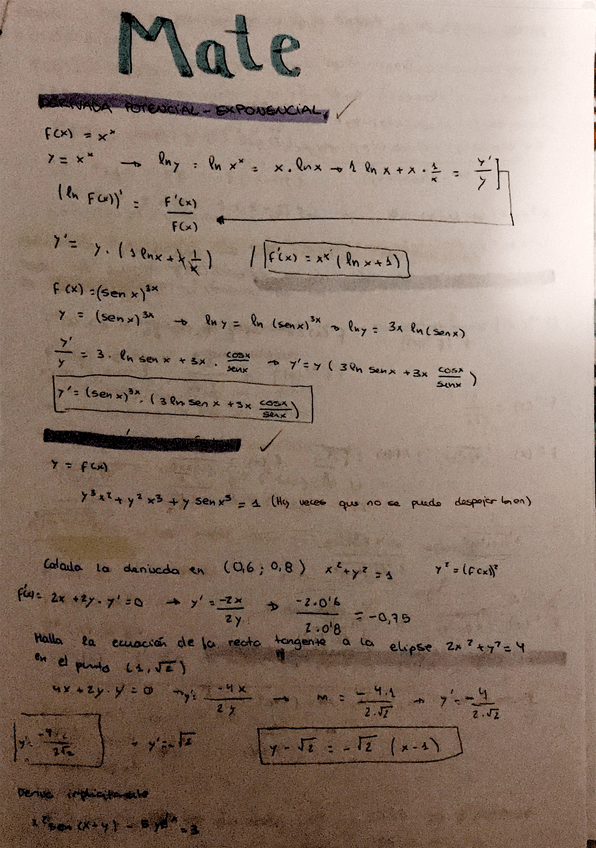 Mate
DERIVADA POTENCIAL - EXPONENCIAL
F(x) = xˣ
y = xˣ → ln y = ln xˣ = x · ln x → 1 ln x + x · 1/x = y'/y
(ln F(x))' = F'(x)/F(x)
y' = y · (1 ln x + x 1/x) / F'(x) = xˣ (ln x + 1)
F(x) = (sen x)³ˣ
y = (sen x)³ˣ → ln y = ln (sen x)³ˣ → ln y = 3x ln (sen x)
y'/y = 3 · ln sen x + 3x · cosx/senx → y' = y (3 ln sen x + 3x cosx/senx)
y' = (sen x)³ˣ · (3 ln sen x + 3x cosx/senx)
y = f(x)
y³x² + y²x³ + y sen x⁵ = 1 (Hay veces que no se puede despejar bien)
Calcula la derivada en (0,6 ; 0,8) x² + y² = 1 y² = (f(x))²
f'(x) = 2x + 2y · y' = 0 → y' = -2x/2y → -2·0'6/2·0'8 = -0,75
Halla la ecuación de la recta tangente a la elipse 2x² + y² = 4
en el punto (1, √2)
4x + 2y · y' = 0 → y' = -4x/2y → m = -4·1/2·√2 → y' = -4/2·√2
y' = 2√2 → y' = -√2 y - √2 = -√2 (x - 1)
Derive implícitamente
sen (x+y) = 3